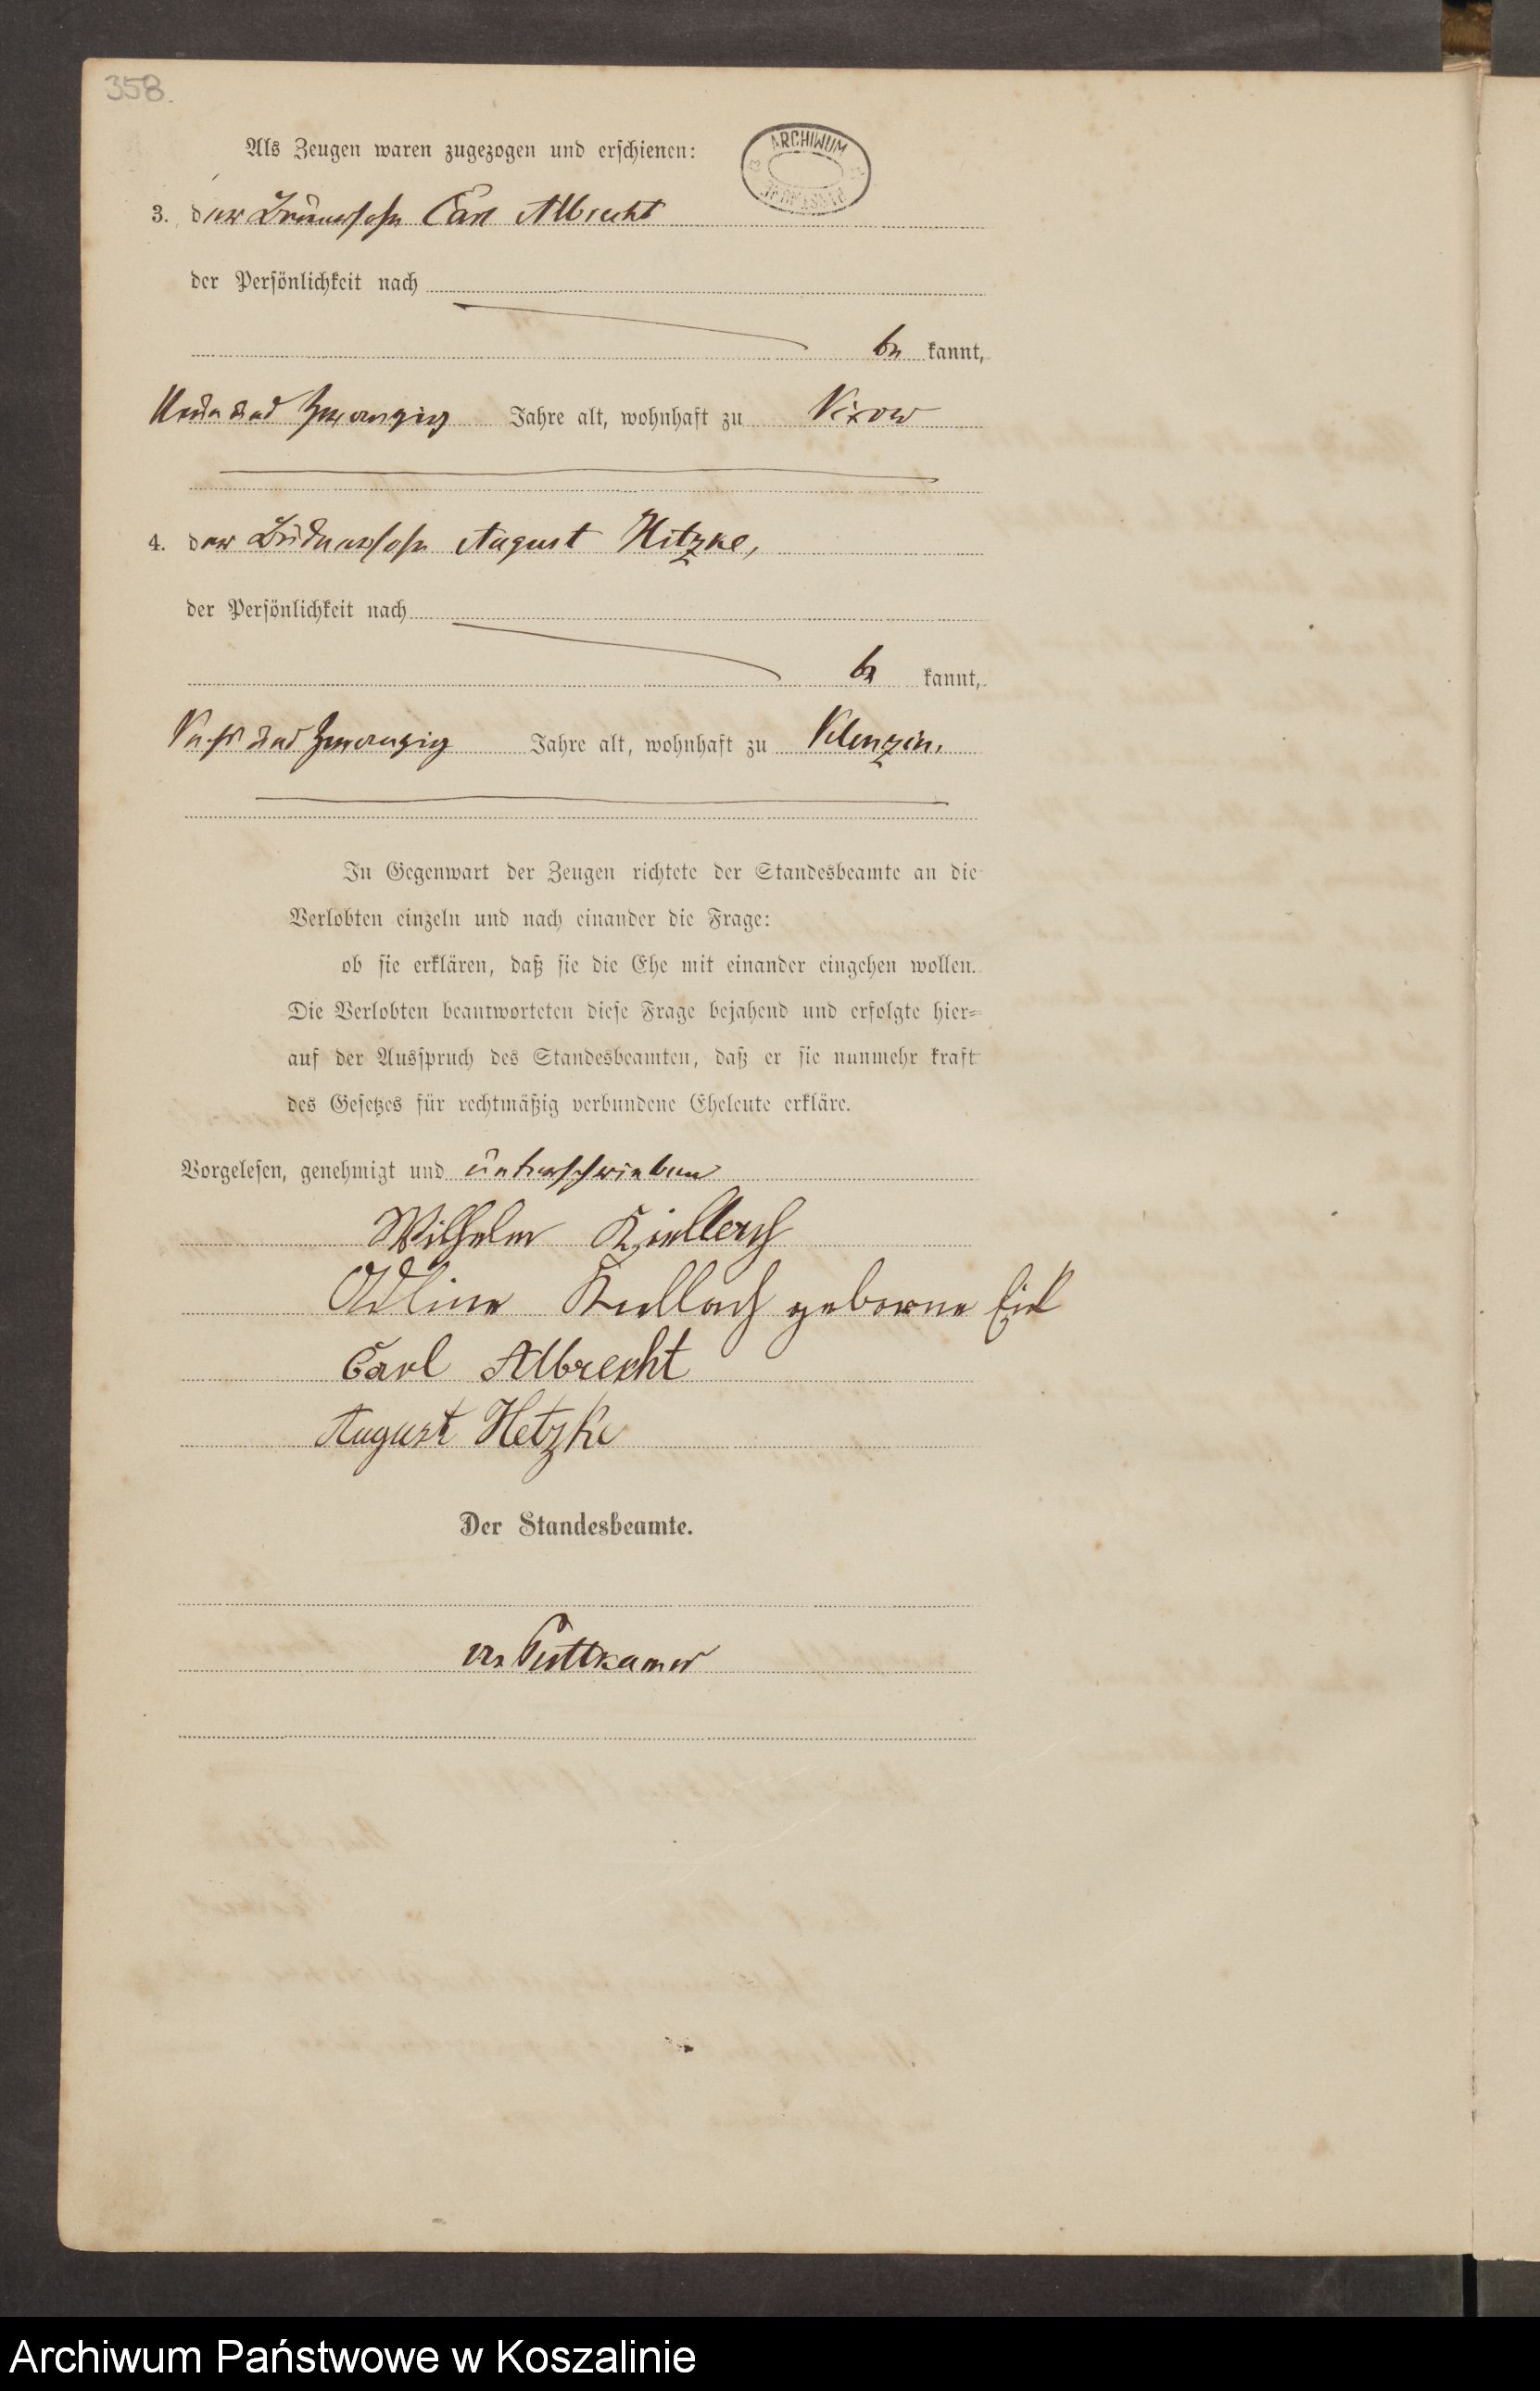 358.
Als Zeugen waren zugezogen und erschienen:
ARCHIWUM
3. der Büdnersohn Carl Albrecht
der Persönlichkeit nach
be kannt,
und zwanzig Jahre alt, wohnhaft zu Vixow
4. der Büdnersohn August Hitzke,
der Persönlichkeit nach
be kannt,
Sechs und zwanzig Jahre alt, wohnhaft zu Klenzin.
In Gegenwart der Zeugen richtete der Standesbeamte an die
Verlobten einzeln und nach einander die Frage:
ob sie erklären, daß sie die Ehe mit einander eingehen wollen.
Die Verlobten beantworteten diese Frage bejahend und erfolgte hier=
auf der Ausspruch des Standesbeamten, daß er sie nunmehr kraft
des Gesetzes für rechtmäßig verbundene Eheleute erkläre.
Vorgelesen, genehmigt und unterschrieben
Wilhelm Kiellach
Adline Kiellach geborne Eick
Carl Albrecht
August Hetzke
Der Standesbeamte.
von Puttkamer
Archiwum Państwowe w Koszalinie